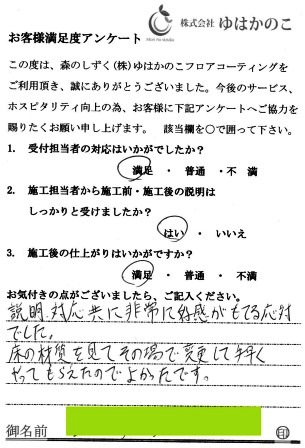 株式会社 ゆはかのこ
Mori no shizuku
お客様満足度アンケート
この度は、森のしずく(株)ゆはかのこフロアコーティングを
ご利用頂き、誠にありがとうございました。今後のサービス、
ホスピタリティ向上の為、お客様に下記アンケートへご協力を
賜りたくお願い申し上げます。 該当欄を○で囲って下さい。
1. 受付担当者の対応はいかがでしたか?
満足 ・ 普通 ・不 満
2. 施工担当者から施工前・施工後の説明は
しっかりと受けましたか?
はい ・ いいえ
3. 施工後の仕上がりはいかがですか?
満足 ・ 普通 ・ 不満
お気付きの点がございましたら、ご記入ください。
説明、対応共に非常に好感がもてる応対
でした。
床の材質を見てその場で変更して手早く
やってもらえたのでよかったです。
御名前 印